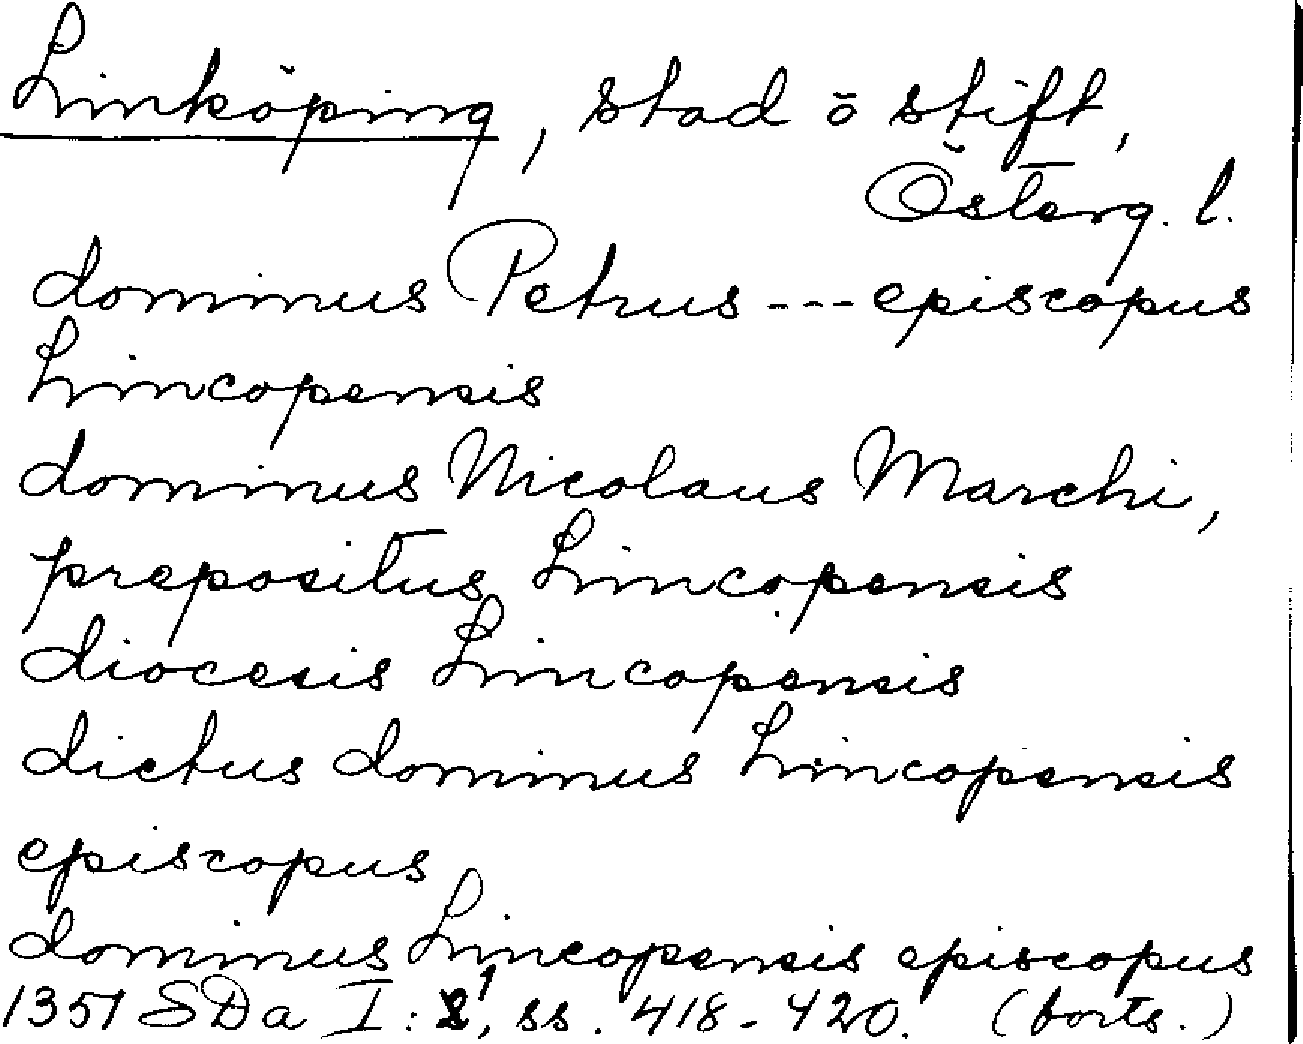 Linköping, stad o stift,
Österg. l.
dominus Petrus --- episcopus
Lincopensis
dominus Nicolaus Marchi,
prepositus Lincopensis
diocesis Lincopensis
dictus dominus Lincopensis
episcopus
dominus Lincopensis episcopus
1351 SDa I: 1, ss. 418-420. (forts.)